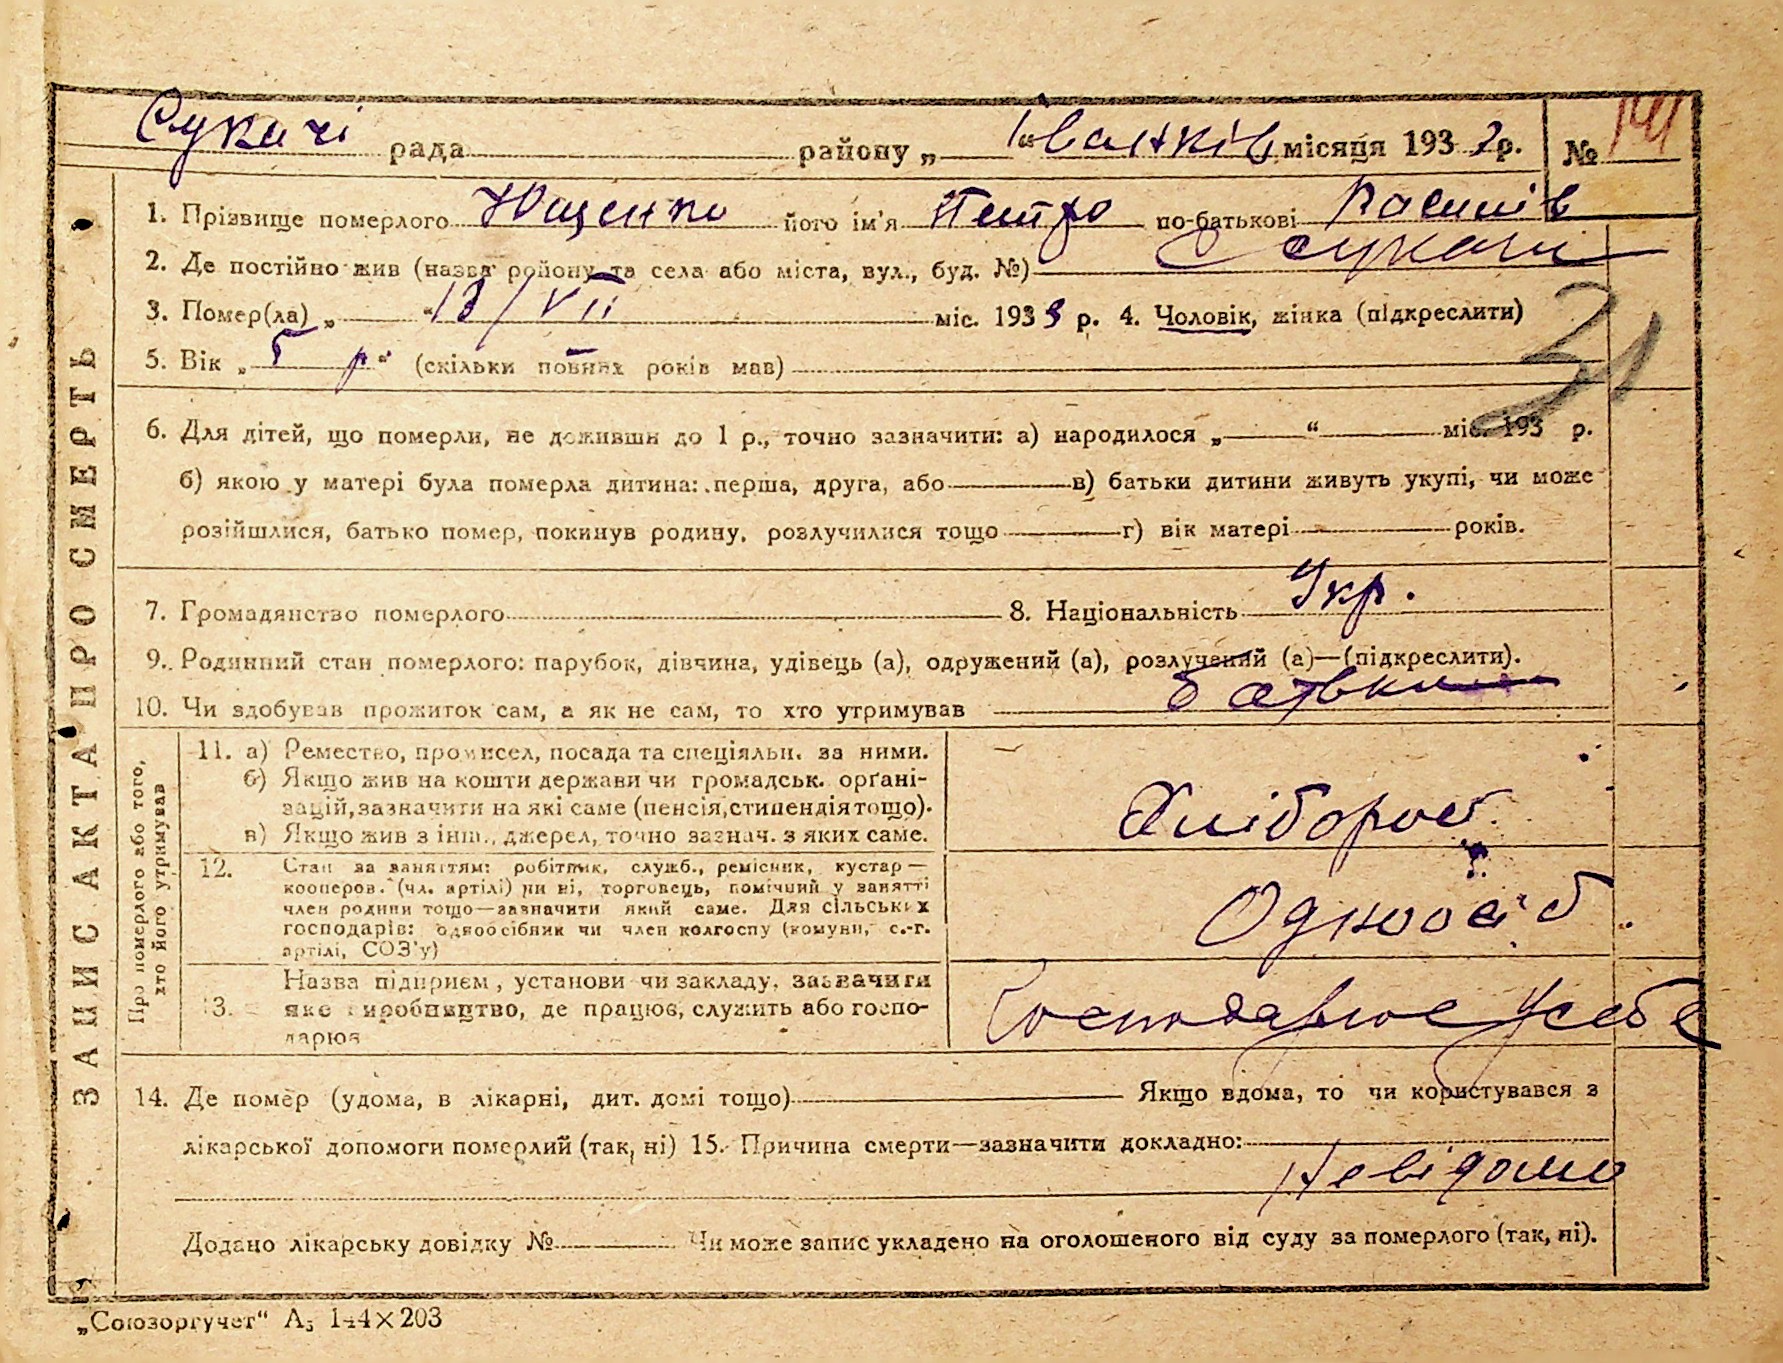 Сукачі рада району „ “ Іванків місяця 1933 р. № 141
1. Прізвище померлого Ющенко його ім'я Петро по-батькові Василів
2. Де постійно жив (назва району та села або міста, вул., буд. №) с Сукачі
3. Помер(ла) „ “ 13/VII міс. 1933 р. 4. Чоловік, жінка (підкреслити)
5. Вік „ 5 р “ (скільки повних років мав)
6. Для дітей, що померли, не доживши до 1 р., точно зазначити: а) народилося „ “ міс. 193 р.
б) якою у матері була померла дитина: перша, друга, або в) батьки дитини живуть укупі, чи може
розійшлися, батько помер, покинув родину, розлучилися тощо г) вік матері років.
7. Громадянство померлого 8. Національність Укр.
9. Родинний стан померлого: парубок, дівчина, удівець (а), одружений (а), розлучений (а)—(підкреслити).
10. Чи здобував прожиток сам, а як не сам, то хто утримував батьки
ЗАПИС АКТА ПРО СМЕРТЬ
Про померлого або того,
хто його утримував
11. а) Ремество, промисел, посада та спеціяльн. за ними.
б) Якщо жив на кошти держави чи громадськ. орґані-
зацій, зазначити на які саме (пенсія, стипендія тощо).
в) Якщо жив з інш., джерел, точно зазнач. з яких саме.
Хлібороб.
12. Стан за заняттям: робітник, служб., ремісник, кустар—
кооперов. (чл. артілі) чи ні, торговець, помічний у занятті
член родини тощо—зазначити який саме. Для сільських
господарів: одноосібник чи член колгоспу (комуни, с.-г.
артілі, СОЗ'у)
Одноосіб.
13. Назва підприєм., установи чи закладу, зазначити
яке виробництво, де працює, служить або госпо-
дарює
Господарює у себе
14. Де помер (удома, в лікарні, дит. домі тощо) Якщо вдома, то чи користувався з
лікарської допомоги померлий (так, ні) 15. Причина смерти—зазначити докладно:
Невідомо
Додано лікарську довідку № Чи може запис укладено на оголошеного від суду за померлого (так, ні).
„Союзоргучет“ А5 144×203